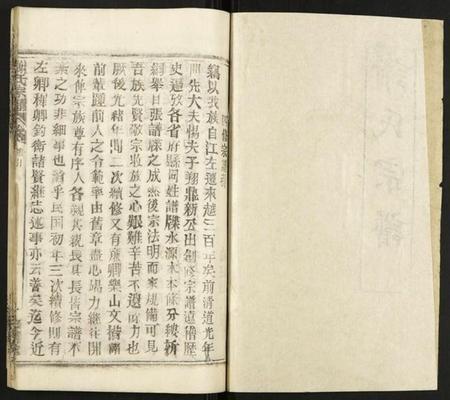 竊以我族自江左遷來越三百年矣前清道光年
間先大夫惕夫子翔鼎新公出創修宗譜遠稽歷
史遐攷各省府縣同姓譜牒水源木本條分縷晰
綱舉目張譜牒之成然後宗法明而家規備可見
吾族先賢敬宗收族之心艱難辛苦不遺餘力也
厥後光緒年間二次續修又有 卿樂山文楷兩
前輩踵前人之令範率由舊章盡心竭力繼往開
來俾宗族尊有序人各親其親長其長皆宗譜不
素之功非細事也洎乎民國初年三次續修則有
左卿梅卿鈞衡諸賢繼志述事亦云善矣迄今近
氏宗譜